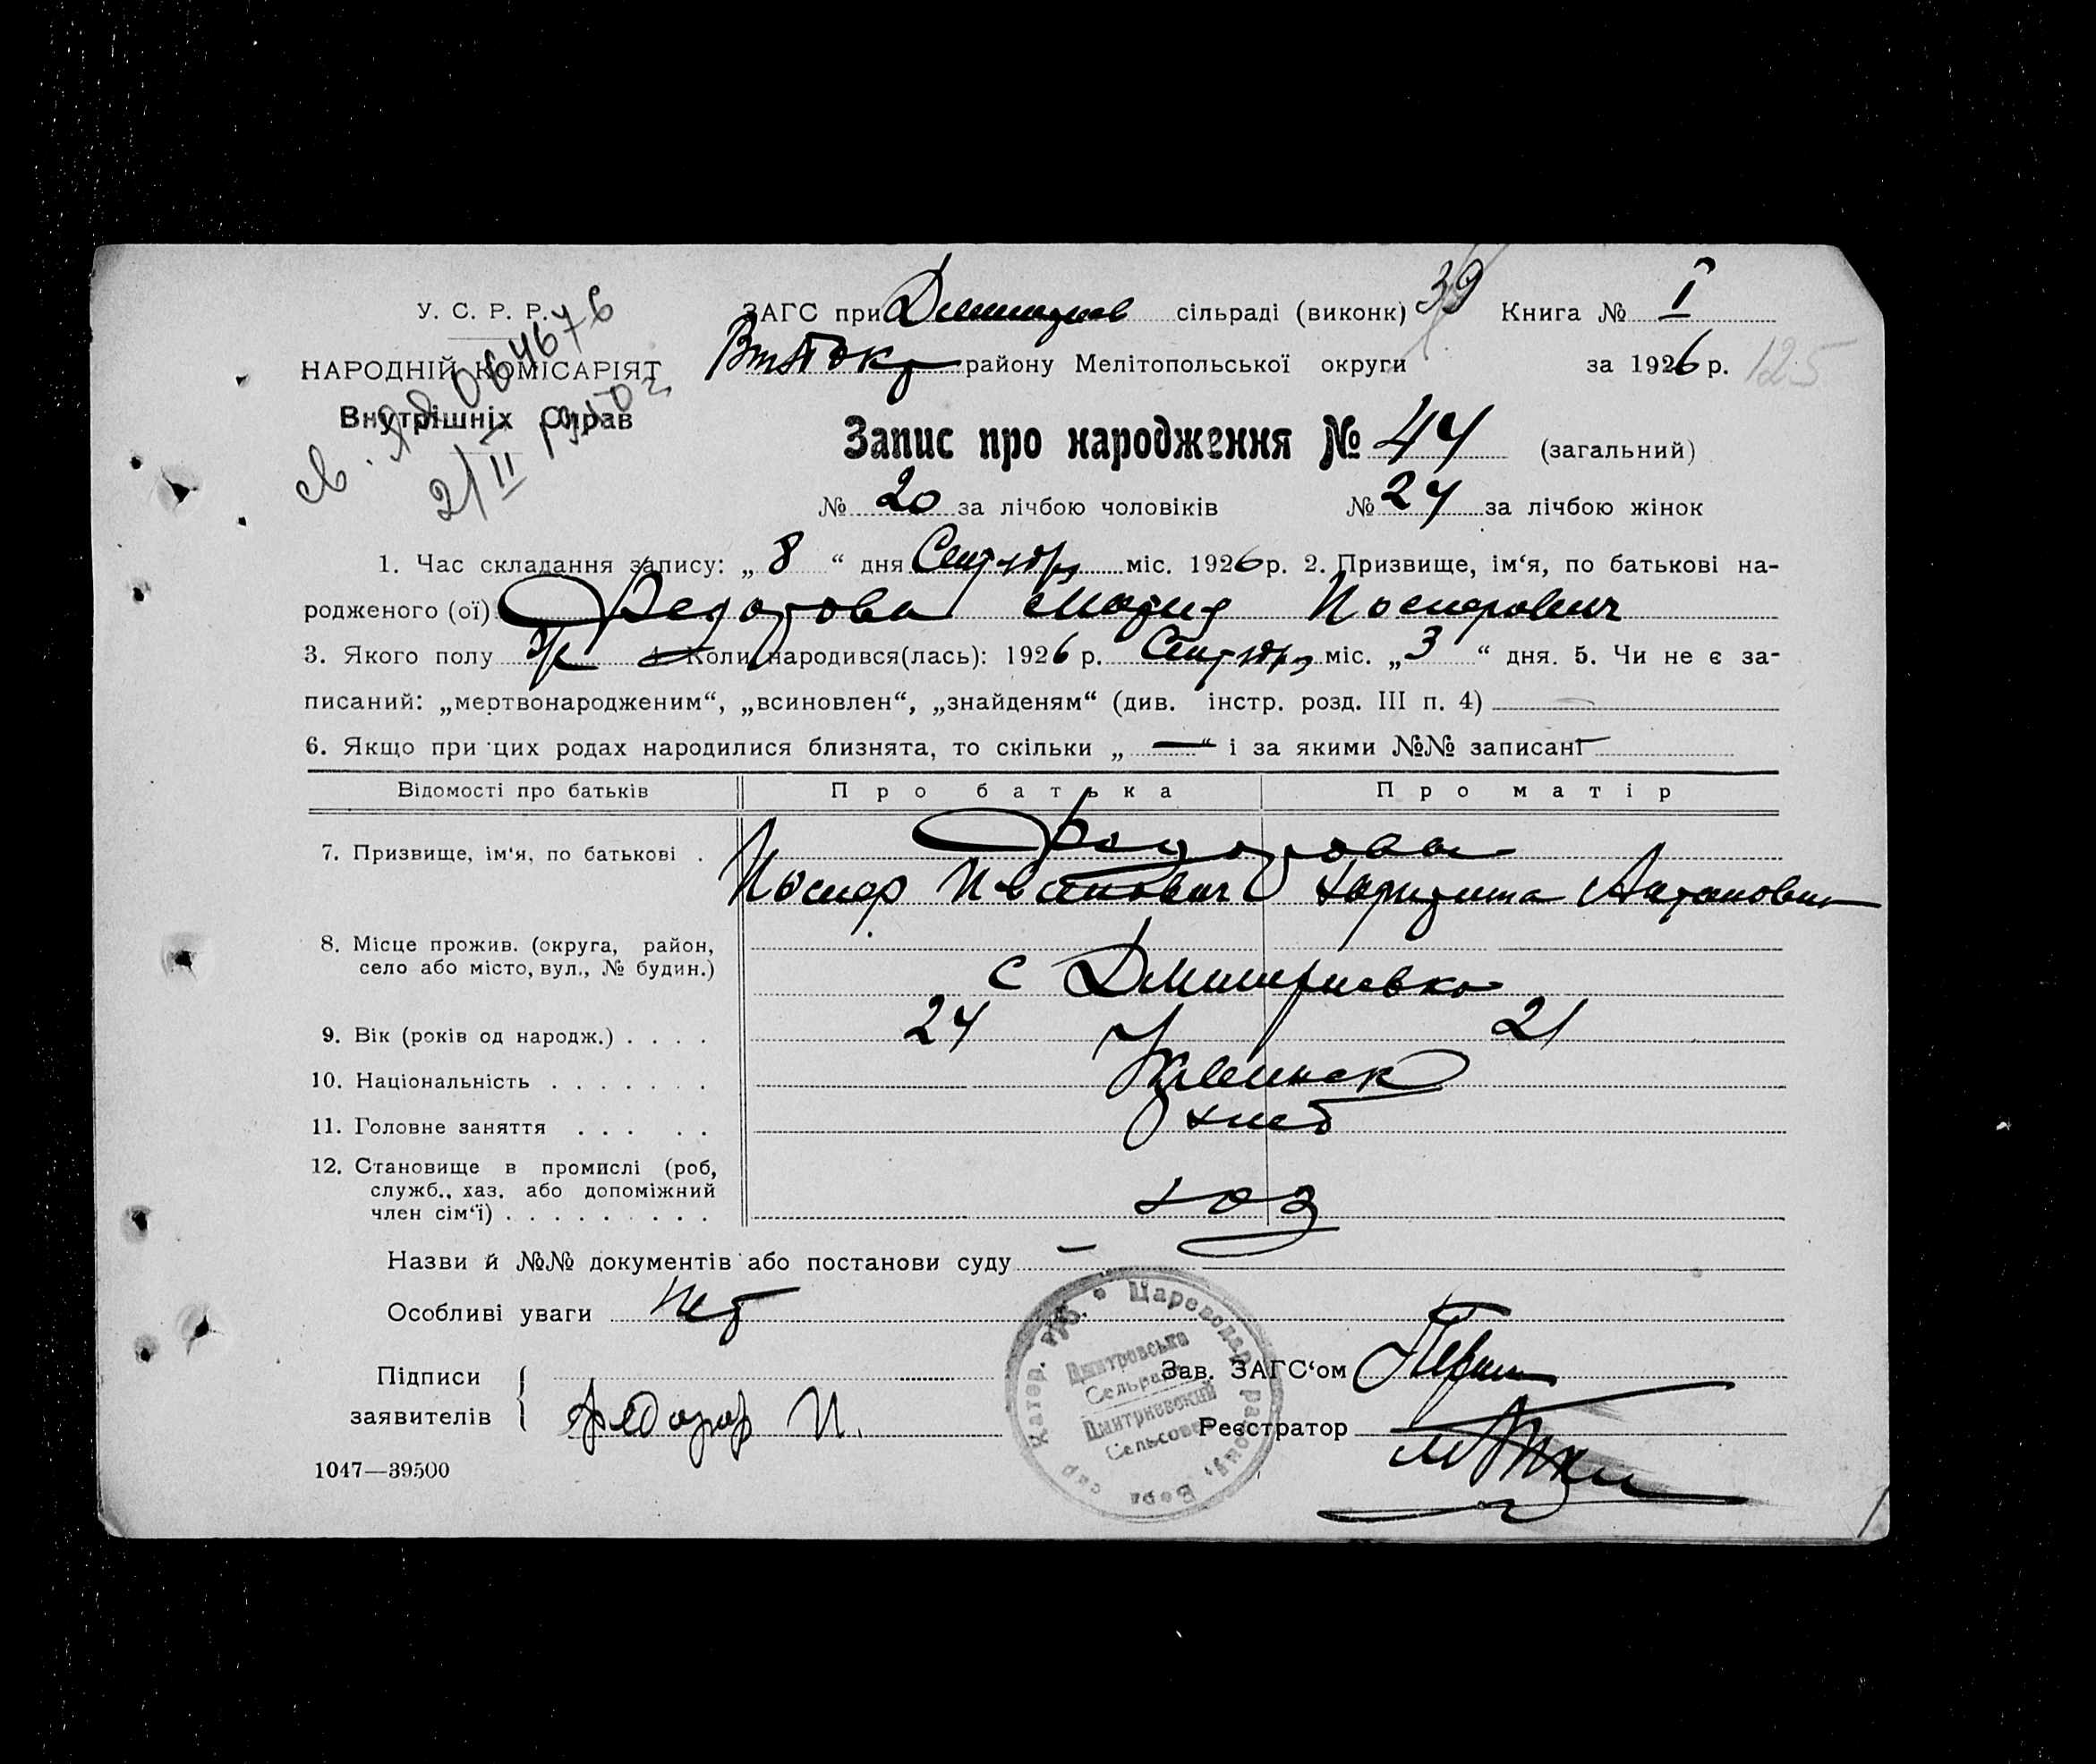 У. С. Р. Р.
НАРОДНІЙ КОМІСАРІЯТ
Внутрішніх Справ
св. ЯВ 064676
21/II
ЗАГС при сільраді (виконк) 39 Книга № I
району Мелітопольської округи за 1926 р. 125
Запис про народження № 44 (загальний)
№ 20 за лічбою чоловіків № 24 за лічбою жінок
1. Час складання запису: „ 8 “ дня Сентября міс. 1926 р. 2. Призвище, ім‘я, по батькові на-
родженого (ої) Федорова Мария
3. Якого полу ж 4 Коли народився(лась): 1926 р. Сентября міс. „ 3 “ дня. 5. Чи не є за-
писаний: „мертвонародженим“, „всиновлен“, „знайденям“ (див. інстр. розд. III п. 4)
6. Якщо при цих родах народилися близнята, то скільки „ — “ і за якими №№ записані —
Відомості про батьків Про батька Про матір
7. Призвище, ім‘я, по батькові . Федорова
8. Місце прожив. (округа, район,
село або місто, вул., № будин.)
с Дмитриевка
9. Вік (років од народж.) . . . . 24 21
10. Національність . . . . . . .
11. Головне заняття . . . . . хлеб
12. Становище в промислі (роб,
служб., хаз. або допоміжний
член сім‘ї) . . . . . . . . . хоз
Назви й №№ документів або постанови суду —
Особливі уваги Нет
Підписи
заявителів Федоров И.
Зав. ЗАГС‘ом
Реєстратор
Цареводар району, Бердянс
Катер. губ.
Дмитровська
Сельрада
Дмитриевский
Сельсовет
1047—39500